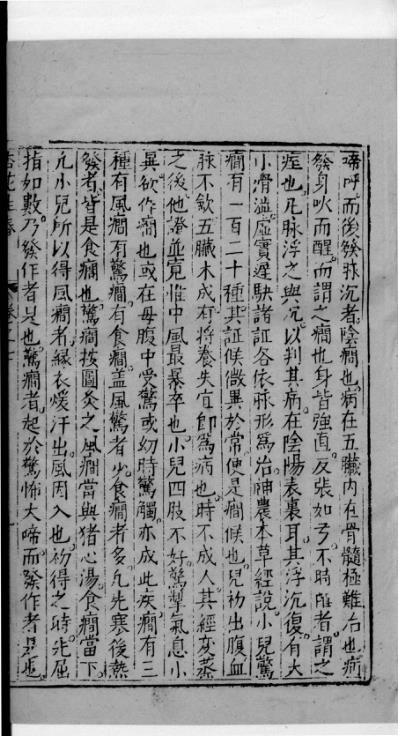 啼呼而後發脉沉者陰癇也病在五臟內在骨髓極難治也病
發身軟而醒而謂之癇也身皆強直反張如弓不時醒者謂之
痓也凡脉浮之與沉以判其病在陰陽表裏耳其浮沉復有大
小滑澁虛實遲駃諸証各依脉形爲治神農本草經說小兒驚
癇有一百二十種其証候微異於常便是癇候也兒初出腹血
脉不斂五臟未成有將養失宜即爲病也時不成人其經变蒸
之後他疹並竟惟中風最暴卒也小兒四肢不好驚掣氣息小
異欲作癇也或在母腹中受驚或幼時驚觸亦成此疾癇有三
種有風癇有驚癇有食癇盖風驚者少食癇者多凢先寒後熱
發者皆是食癇也驚癇按圖灸之風癇當與猪心湯食癇當下
凢小兒所以得風癇者緣衣煖汗出風因入也初得之時先屈
指如數乃發作者是也驚癇者起於驚怖大啼而發作者是也